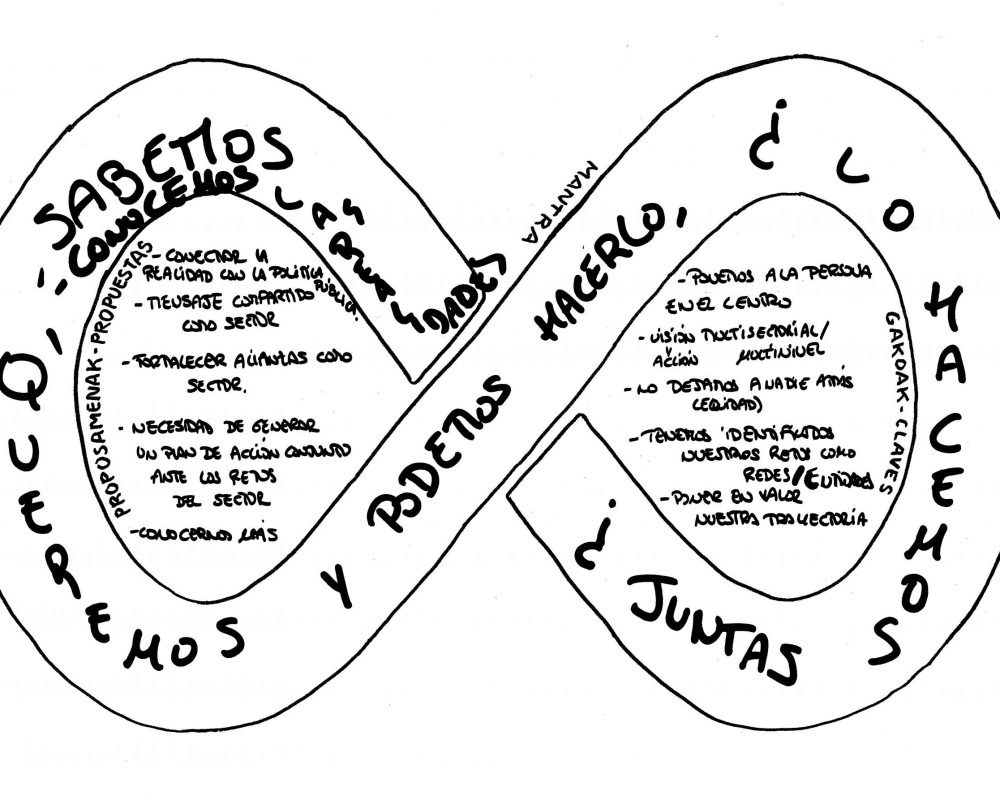 SABEMOS
-CONOCEMOS
QUEREMOS Y PODEMOS HACERLO,
¿LO HACEMOS
JUNTAS?
MANTRA
PROPOSAMENAK-PROPUESTAS
- CONECTAR LA
REALIDAD CON LA POLÍTICA PÚBLICA.
- MENSAJE COMPARTIDO
COMO SECTOR
- FORTALECER ALIANZAS COMO
SECTOR.
- NECESIDAD DE GENERAR
UN PLAN DE ACCIÓN CONJUNTO
ANTE LOS RETOS
DEL SECTOR
- CONOCERNOS MÁS
GAKOAK-CLAVES
- PONEMOS A LA PERSONA
EN EL CENTRO
- VISIÓN MULTISECTORIAL/
ACCIÓN MULTINIVEL
- NO DEJAMOS A NADIE ATRÁS
(EQUIDAD)
- TENEMOS IDENTIFICADOS
NUESTROS RETOS COMO
REDES/ENTIDADES
- PONER EN VALOR
NUESTRA TRAYECTORIA